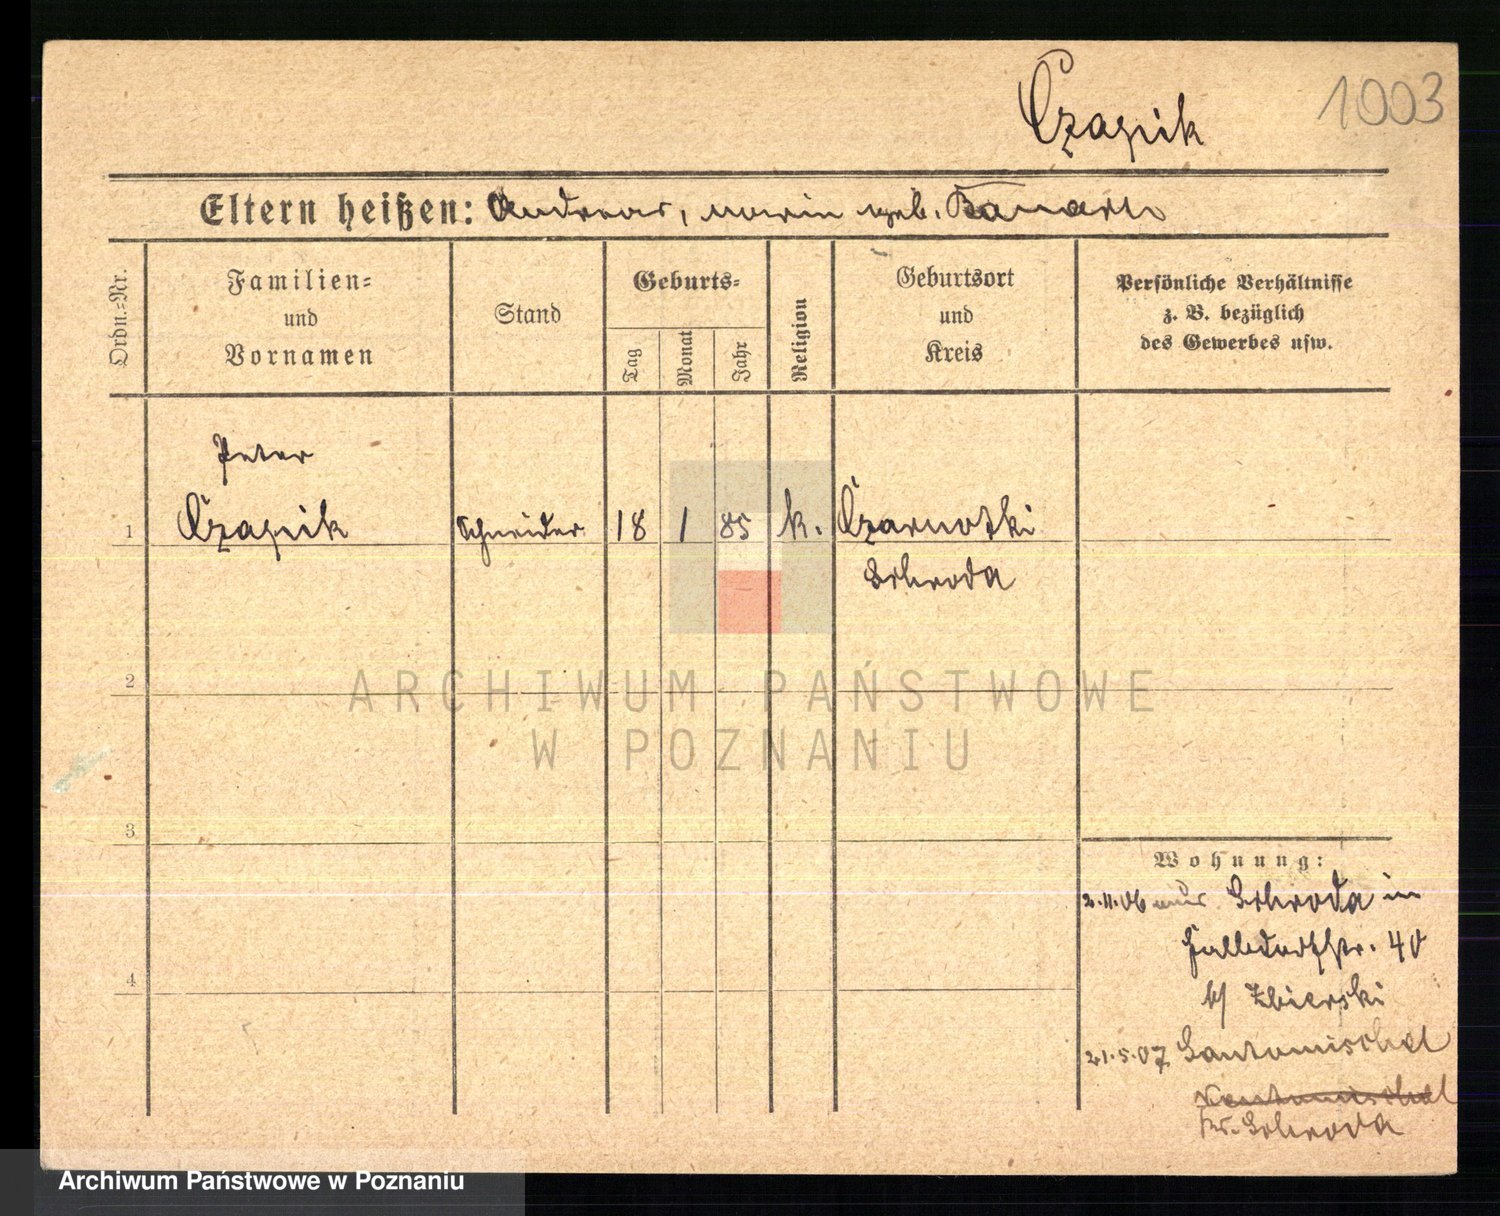 Czapik
1003
Eltern heißen: Andreas, Marie geb. Banas
Ordn.-Nr.
Familien-
und
Vornamen
Stand
Geburts-
Tag
Monat
Jahr
Religion
Geburtsort
und
Kreis
Persönliche Verhältnisse
z. B. bezüglich
des Gewerbes usw.
Peter
1 Czapik Schneider 18 1 85 k. Czarnotki
Schroda
2
3
4
Wohnung:
2.11.06 aus Schroda in
40
b/ Zbierski
21.5.07 Santomischel
Santomischel
Kr. Schroda
ARCHIWUM PAŃSTWOWE
W POZNANIU
Archiwum Państwowe w Poznaniu